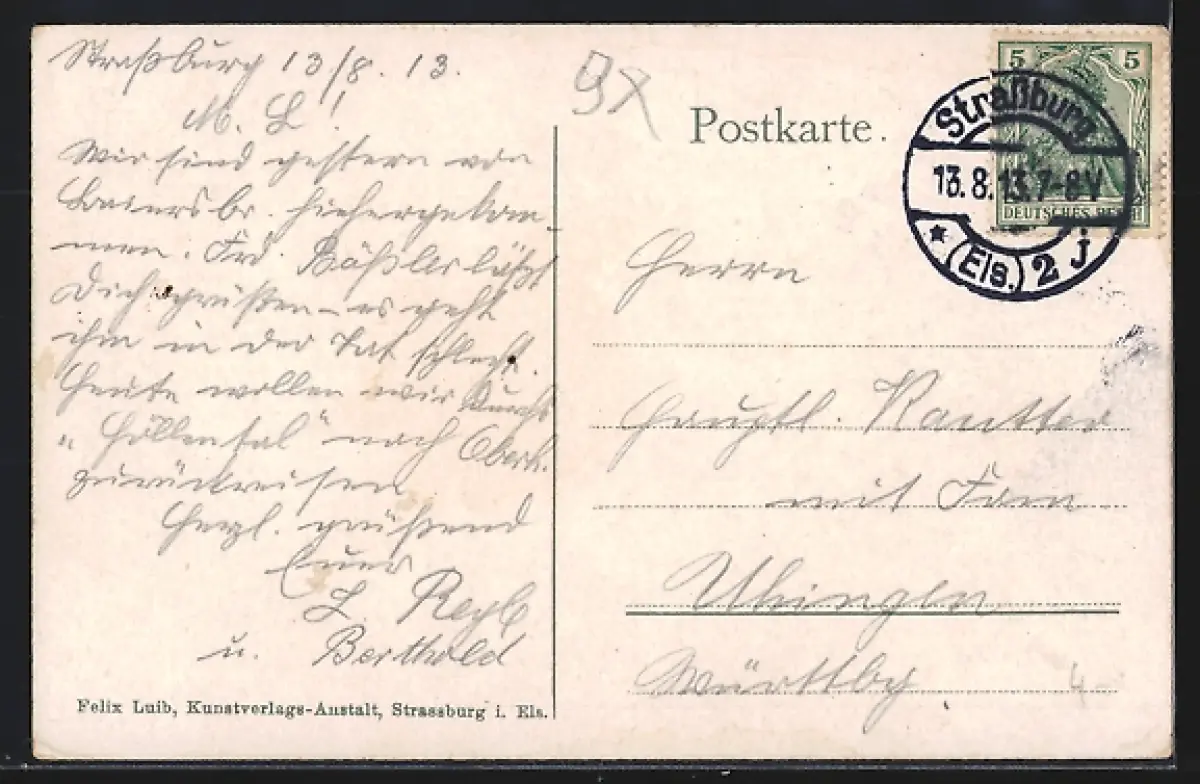 Straßburg 13/8. 13.
M. L!
Wir sind gestern von
Baiersbr. hiehergekom
men. Frd. Bäßler läßt
Dich grüßen – es geht
ihm in der Tat schlecht.
Heute wollen wir durchs
„Höllental" nach Oberk.
zurückreisen
Herzl. grüßend
Euer
L.
u. Berthold
Felix Luib, Kunstverlags-Anstalt, Strassburg i. Els.
Postkarte.
5 5
DEUTSCHES REICH
Straßburg
13.8.13.7-8V
* (Els.) 2 j
Herrn
Hauptl. Rantter
mit Fam
Uhingen
Württbg
4